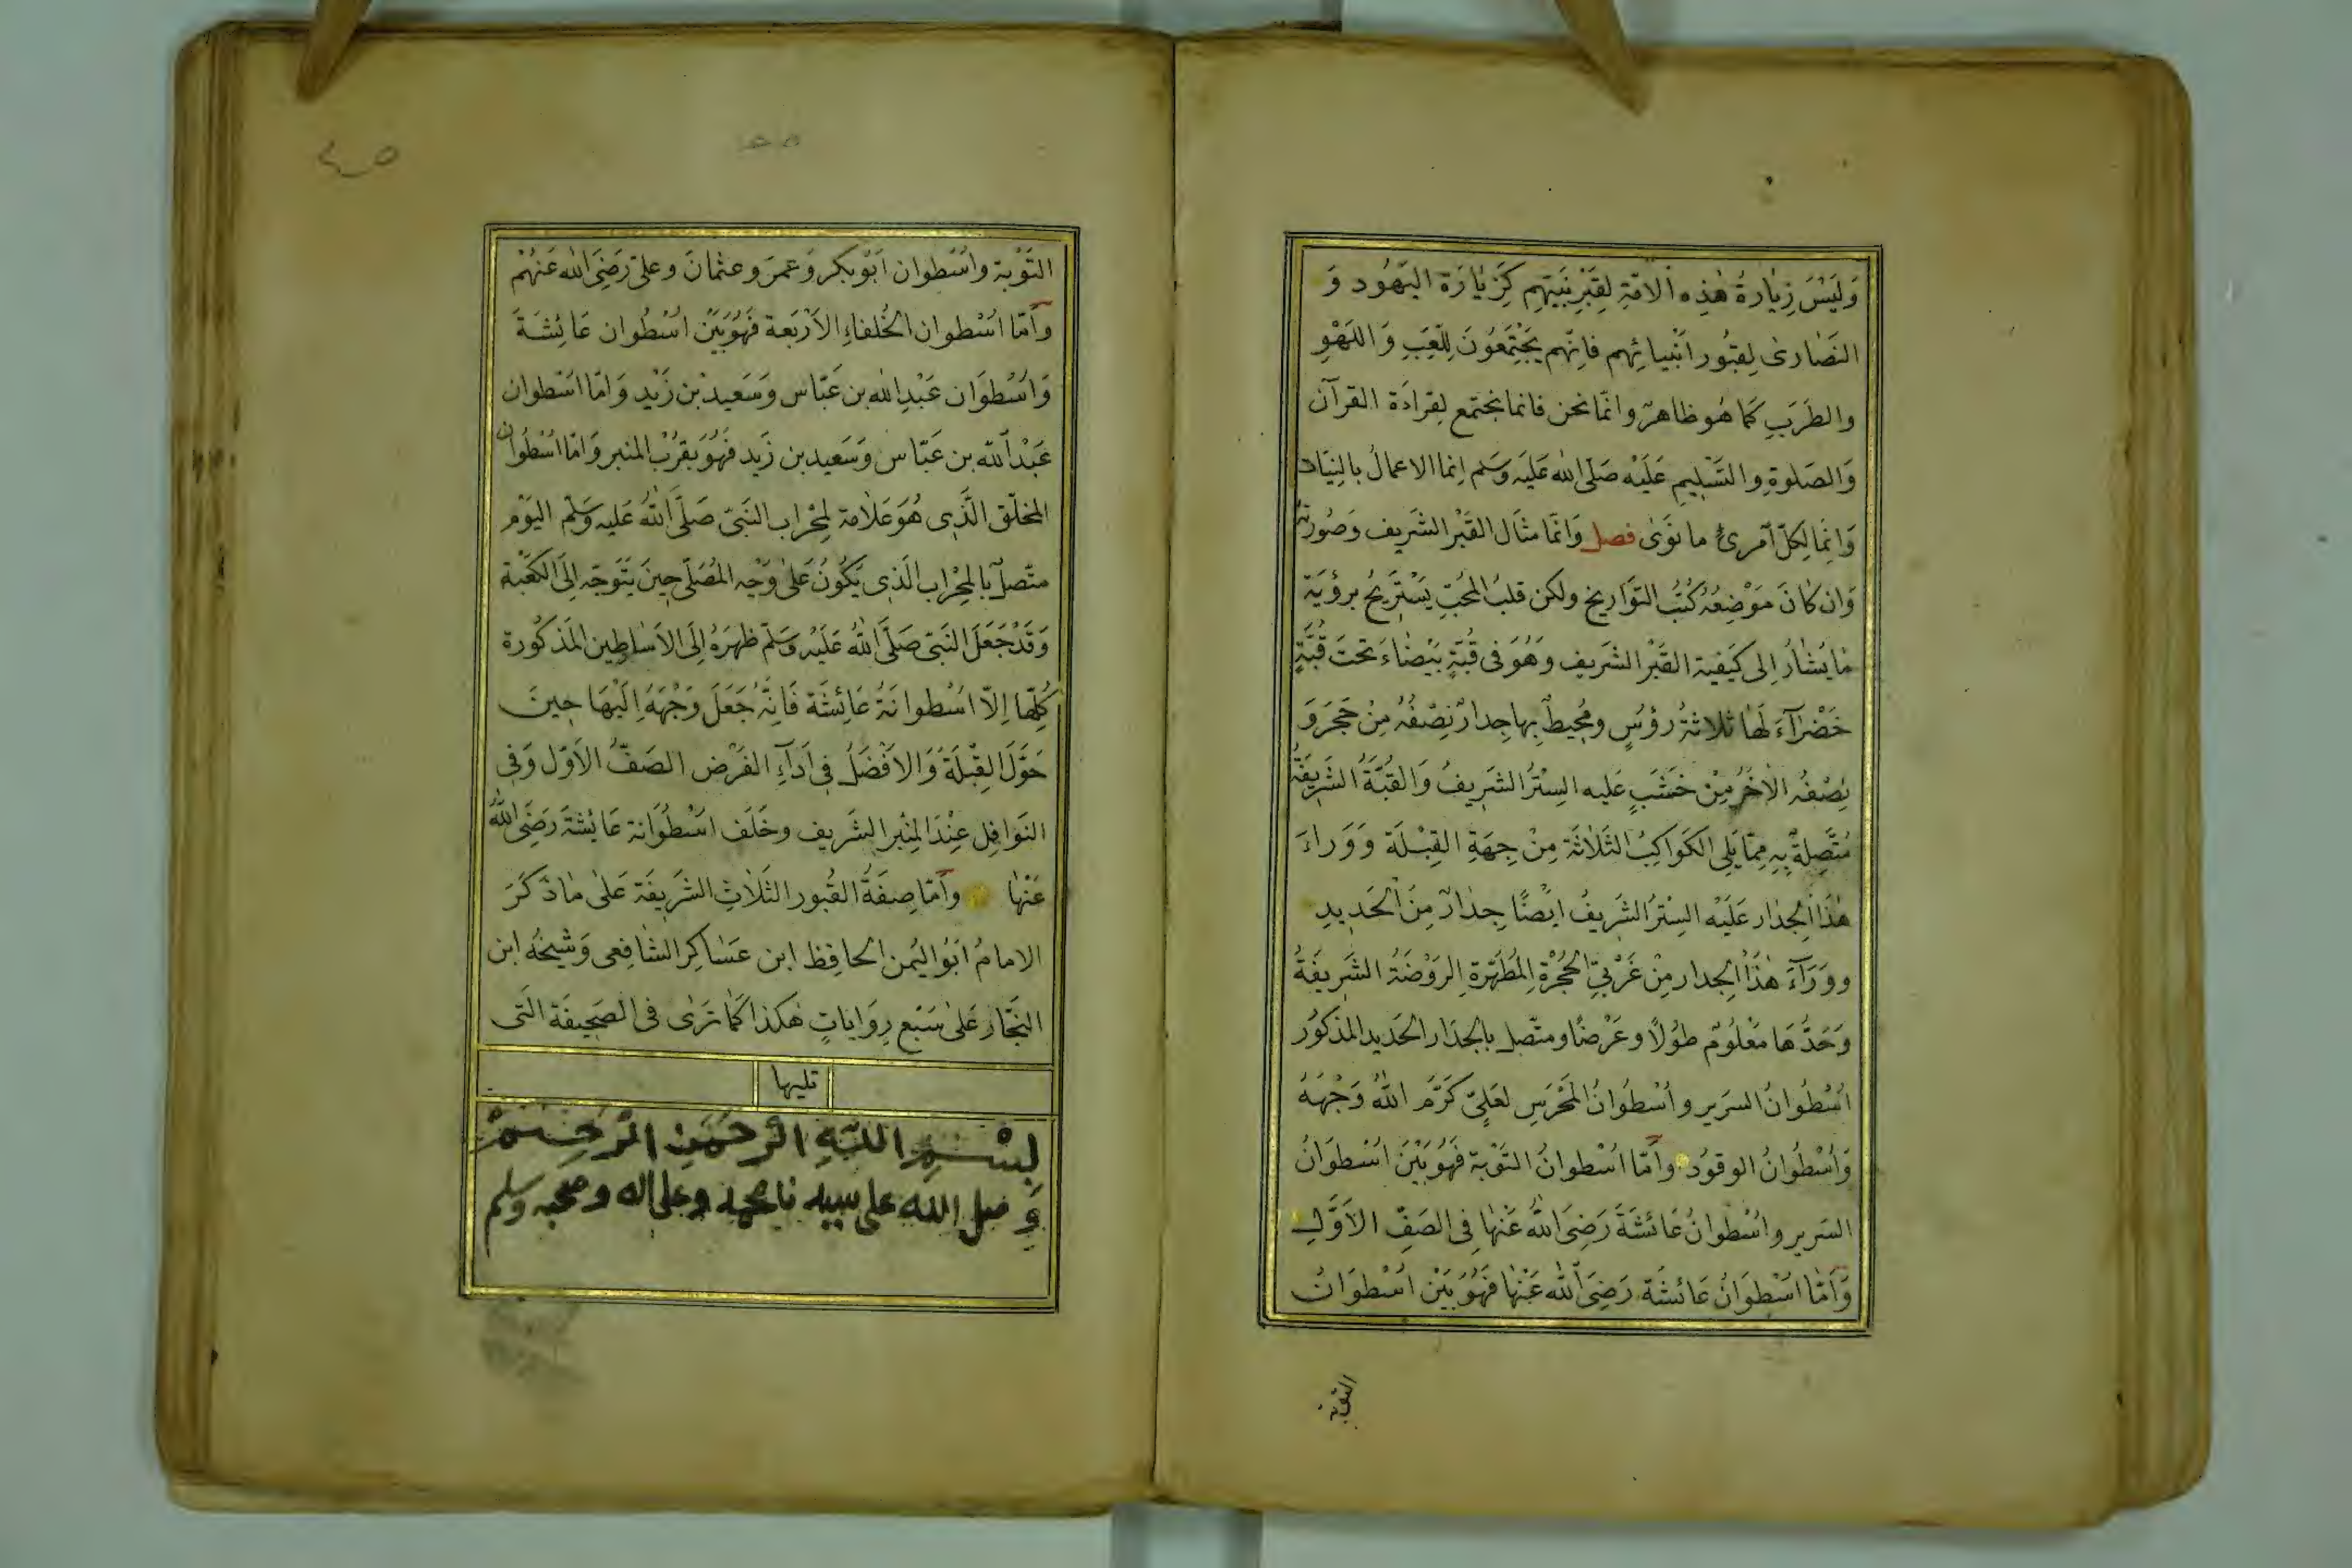 وَلَيْسَ زِيٰارَةُ هٰذِهِ الامّةِ لِقَبْرِ نَبِيّهِم كَزِيٰارَة اليَهُود وَ
النَصٰارىٰ لِقبُور انْبيائِهم فانّهم يَجْتَمِعُونَ لِلّعَبِ وَ اللهْوِ
والطَرَبِ كَمَا هُو ظاهرٌ وامّا نحن فانما نجتمع لِقِراءَة القرآن
وَالصَلوةِ والتَسْلِيمِ عَلَيْه صَلّى الله عَليَه وَسَلم اِنما الاعمالُ بالنِيّات
وَانِمَا لِكلّ آمرىءٍ ما نَوَىٰ فصل وَامَّا مثَال القَبْر الشَريف وَصُورتهُ
وَان كٰانَ مَوْضِعُهُ كُتُب التَوَاريخ ولكن قلبُ المُحِبِّ يَسْتَرِيحُ برؤيَة
مٰا يُشٰارُ اِلى كيَفية القَبْر الشَريف وَهُوَ فى قُبّةٍ بَيْضٰاءَ تحتَ قُبَّةٍ
خَضْرٰآءَ لَهٰا ثَلاثةُ رؤسٍ ومُحِيطٌ بِها جِدارٌ نِصْفُهُ مِنْ حَجَر وَ
نِصْفُه الاٰخَرُ مِنْ خَشَبٍ عَليه السِتْرُ الشَرِيفُ وَالقُبَّةُ الشَرِيفَةُ
مُتَّصِلةٌ بِهِ مِمّا يَلِى الكَوَاكِبُ الثَلاٰثَة مِنْ جِهَةِ القِبْلَة وَوَراءَ
هٰذَا الجِدٰار عَلَيْه السِتْرُ الشَريفُ ايْضًا جِدٰارٌ مِنَ الحَدِيدِ
ووَرَآءَ هٰذَا الجِدار مِنْ غَرْبيّ الحُجُرْةِ المُطَهّرةِ الرَوْضَةُ الشَرِيفَةُ
وَحَدُّهَا مَعْلُومٌ طُولًا وعَرْضًا ومتّصل بالجِدَار الحَديد المذكوُر
اُسْطُوانُ السَرير واُسْطُوانُ المَحْرَسِ لعَلِيّ كَرَّمَ اللهُ وَجْهَهُ
وَاُسْطُوانُ الوقودُ وأَمّا اسْطوانُ التَوْبة فَهُوَ بَيْنَ اسْطوَانُ
السَرير واسْطوانُ عَائشَةَ رَضِىَ اللهُ عَنْهٰا فِى الصَفِّ الاَوَّلِ
وَأَمّا اسْطوَانُ عَائشَة رَضِىَ الله عَنْها فَهُوَ بَيْنَ اسْطوَانُ
التوبة
التَوْبة واسْطوان ابَوْ بَكر وَعمرَ وعثمانَ وعلىّ رَضِىَ الله عَنهُمْ
وأمّا اسْطوان الخُلفاءِ الاَرْبَعة فَهُوَ بَيْنَ اسْطُوان عَائِشَةَ
وَاسْطوَان عَبْدِ الله بن عَبّاس وَسَعيد بْن زَيْد وَامّا اسْطوان
عَبْد الله بن عَبّاس وَسَعيد بن زَيد فَهُوَ بقرُب المنبر وَامّا اسْطُوان
المخلّق الّذِى هُوَ عَلامَة لِمِحْرٰاب النَبىّ صَلّى اللهُ عَليه وَسَلّم اليَوْم
متّصل بالمِحْراب الَذِى يَكُونُ عَلىٰ وَجْه المُصَلّى حِينَ يَتَوجّه اِلَى الكَعْبَة
وَقَدْ جَعَلَ النَبىّ صَلّى اللهُ عَلَيْه وَسَلّم ظَهرَهُ اِلَى الاَسٰاطِين المَذكُورة
كُلّهَا اِلاّ اسْطوانَةُ عَائِشَة فَانِّهُ جَعَلَ وَجْهَهُ اِلَيْهَا حِينَ
حَوَّلَ القِبْلَةُ وَالاَفْضَلُ فِى اَدَآءِ الفَرْض الصَفّ الاَوّل وَفِى
النَوَافِل عِنْدَ المنِبْر الشَريف وخَلَف اسْطُوَانة عَائشَةَ رَضِىَ اللهُ
عَنْهٰا وأمّا صِفَةُ القُبور الثَلاٰثِ الشَرِيفَة عَلىٰ مٰا ذَكَرَ
الامامُ اَبُو اليُمن الحافِظ ابن عَسٰاكِر الشافِعِى وَشيخُه ابن
النجّار عَلىٰ سَبْع رِوَاياتٍ هٰكذا كَمٰا تَرٰى فى الصَحِيفَة الَتى
تليها
بِسْمِ اللّهِ الرَحْمَنِ الرَحِيمْ
وَصل الله على سيدنا محمد وعلى اله وصحبه وسلم